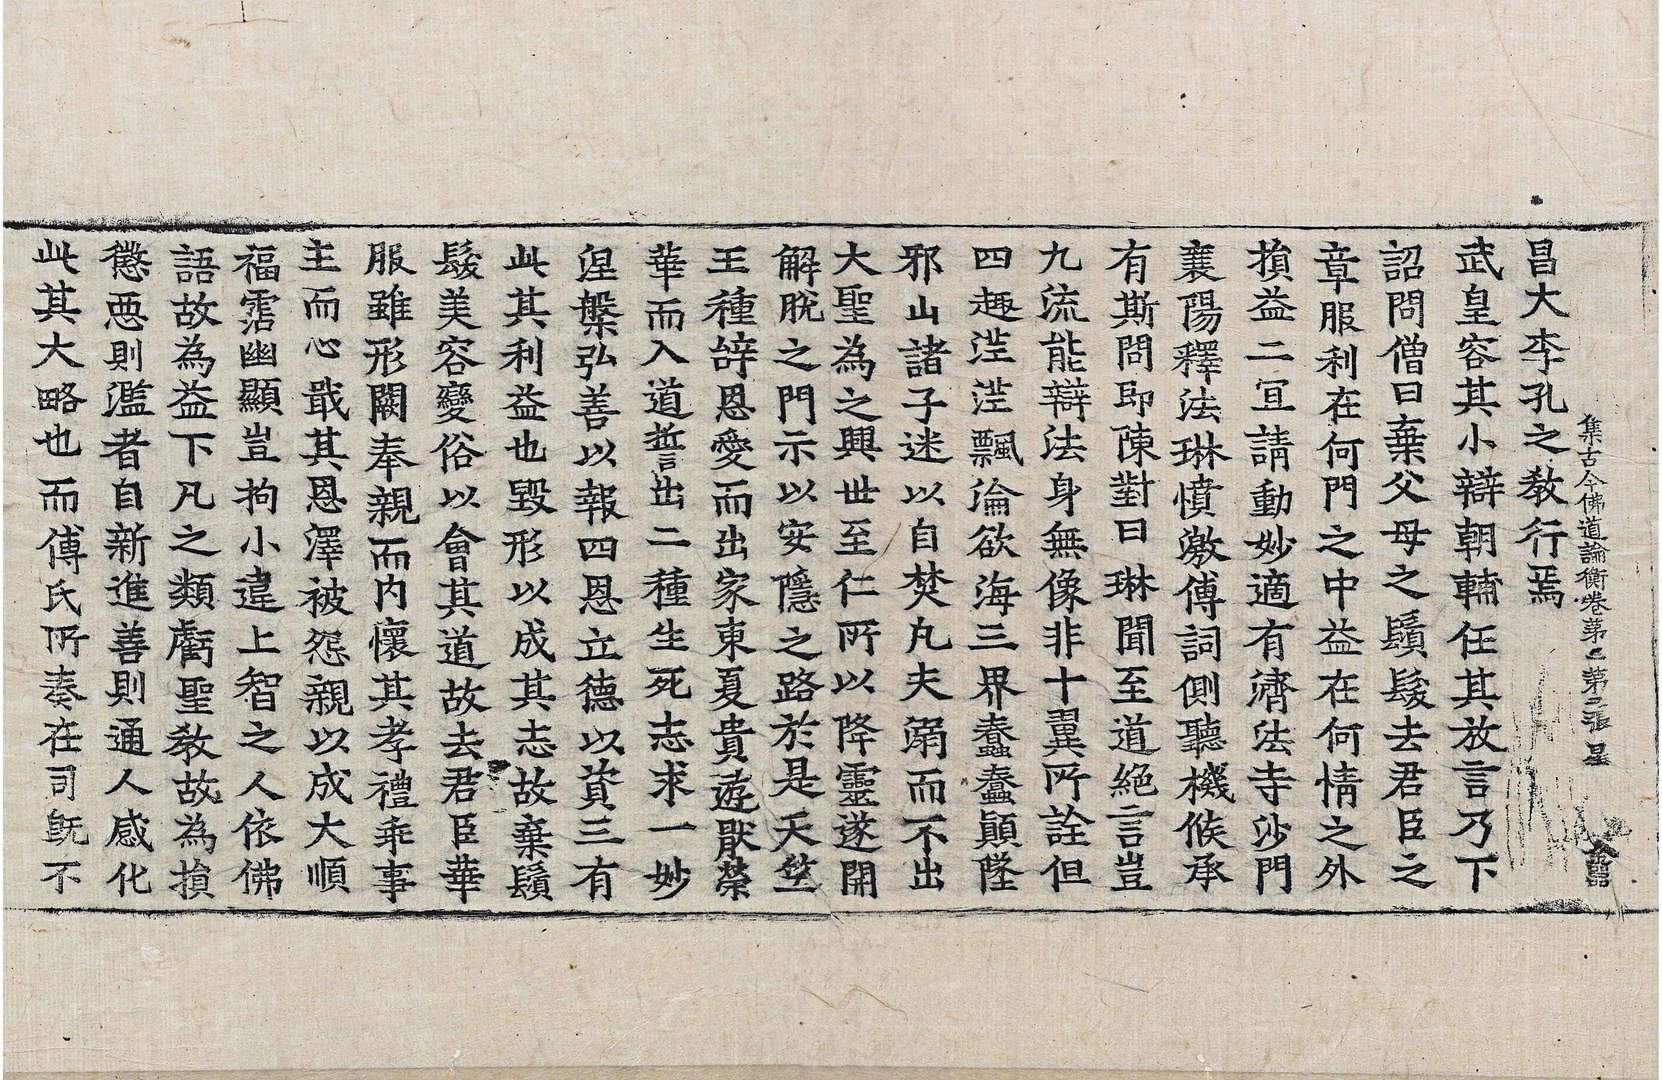 集古今佛道論衡卷第 第二張 星
昌大李孔之敎行焉
武皇容其小辯朝輔任其放言乃下
詔問僧曰棄父母之鬚髮去君臣之
章服利在何門之中益在何情之外
損益二冝請動妙適有濟法寺沙門
襄陽釋法琳憤激傅詞側聽機候承
有斯問即陳對曰琳聞至道絕言豈
九流能辯法身無像非十翼所詮但
四趣茫茫飄淪欲海三界蠢蠢顚墜
邪山諸子迷以自焚凡夫溺而不出
大聖為之興世至仁所以降靈遂開
解脫之門示以安隱之路於是天竺
王種辝恩愛而出家東夏貴遊厭榮
華而入道誓出二種生死志求一妙
涅槃弘善以報四恩立德以資三有
此其利益也毀形以成其志故棄鬚
髮美容變俗以會其道故去君臣華
服雖形闕奉親而內懷其孝禮乖事
主而心戢其恩澤被怨親以成大順
福霑幽顯豈拘小違上智之人依佛
語故為益下凡之類虧聖敎故為損
懲惡則濫者自新進善則通人感化
此其大略也而傅氏所奏在司旣不